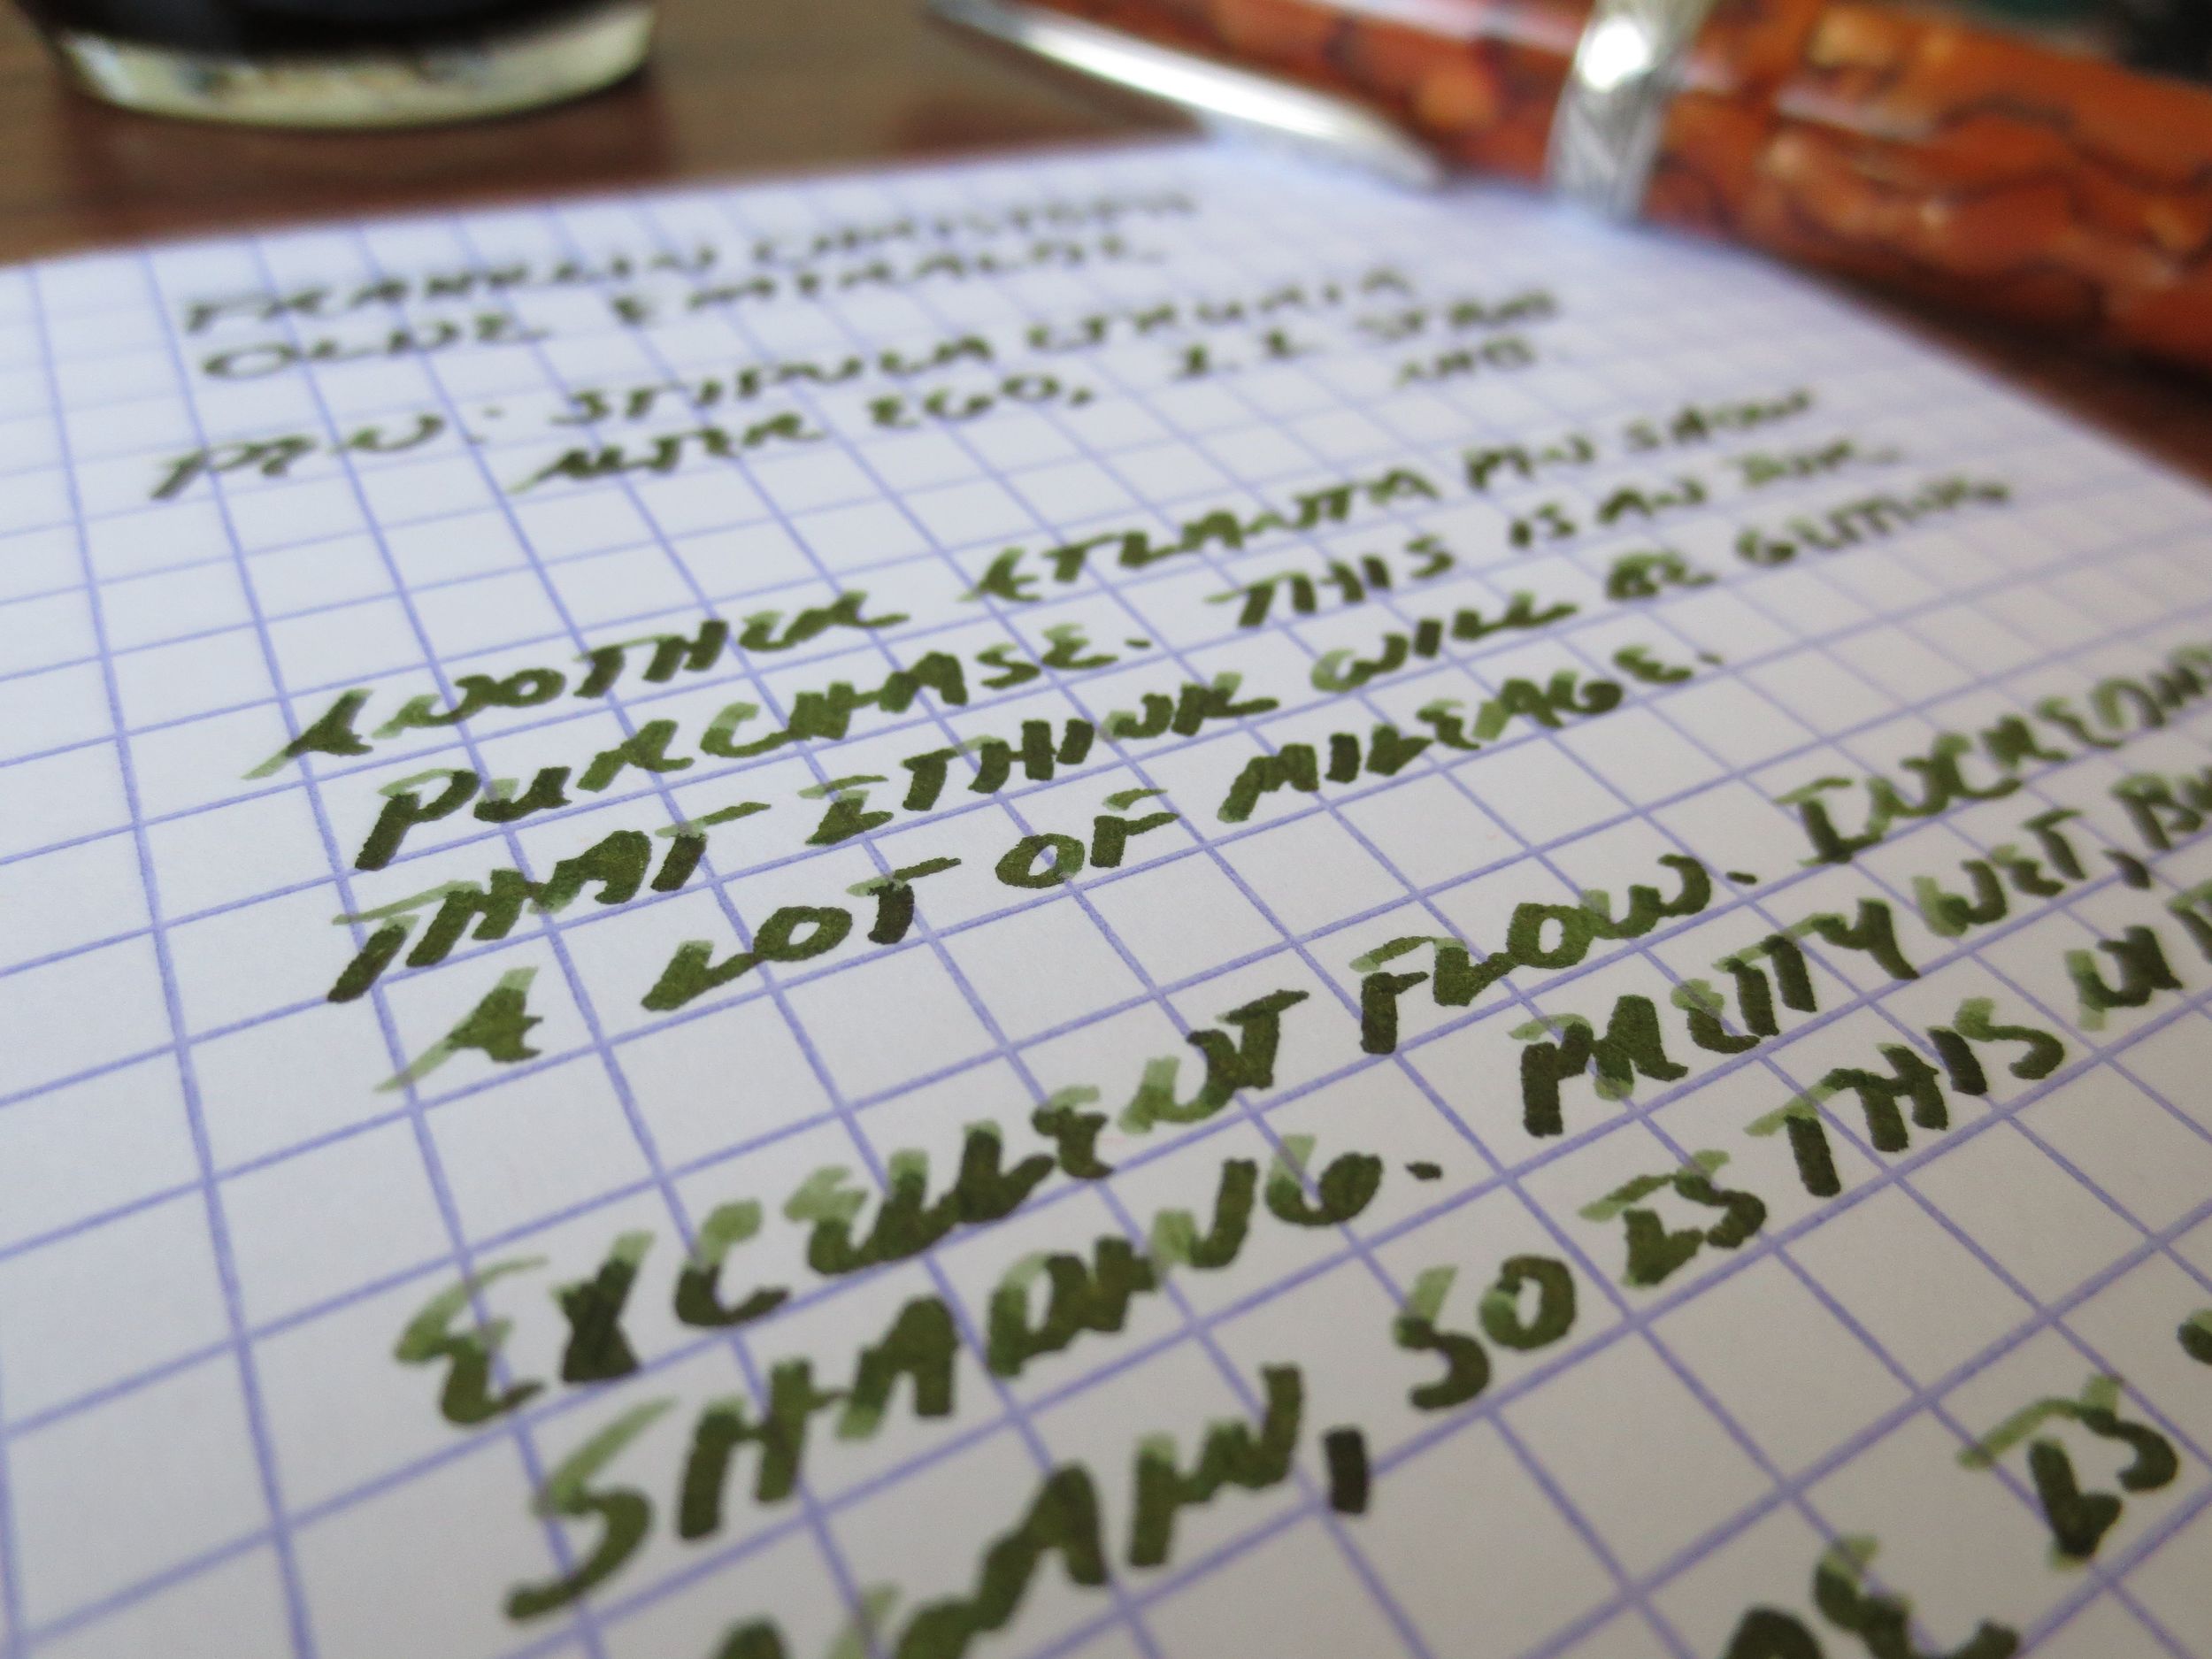 FRANKLIN CHRISTOPH
OLDE EMERALDE
PEN: STIPULA ETRURIA
ALTER EGO, 1.1 STUB
ANOTHER ATLANTA PEN SHOW
PURCHASE. THIS IS AN INK
THAT I THINK WILL BE GETTING
A LOT OF MILEAGE.
EXCELLENT FLOW. INCREDIBLE
SHADING. PRETTY WET, BU
MAN, SO IS THIS
IS